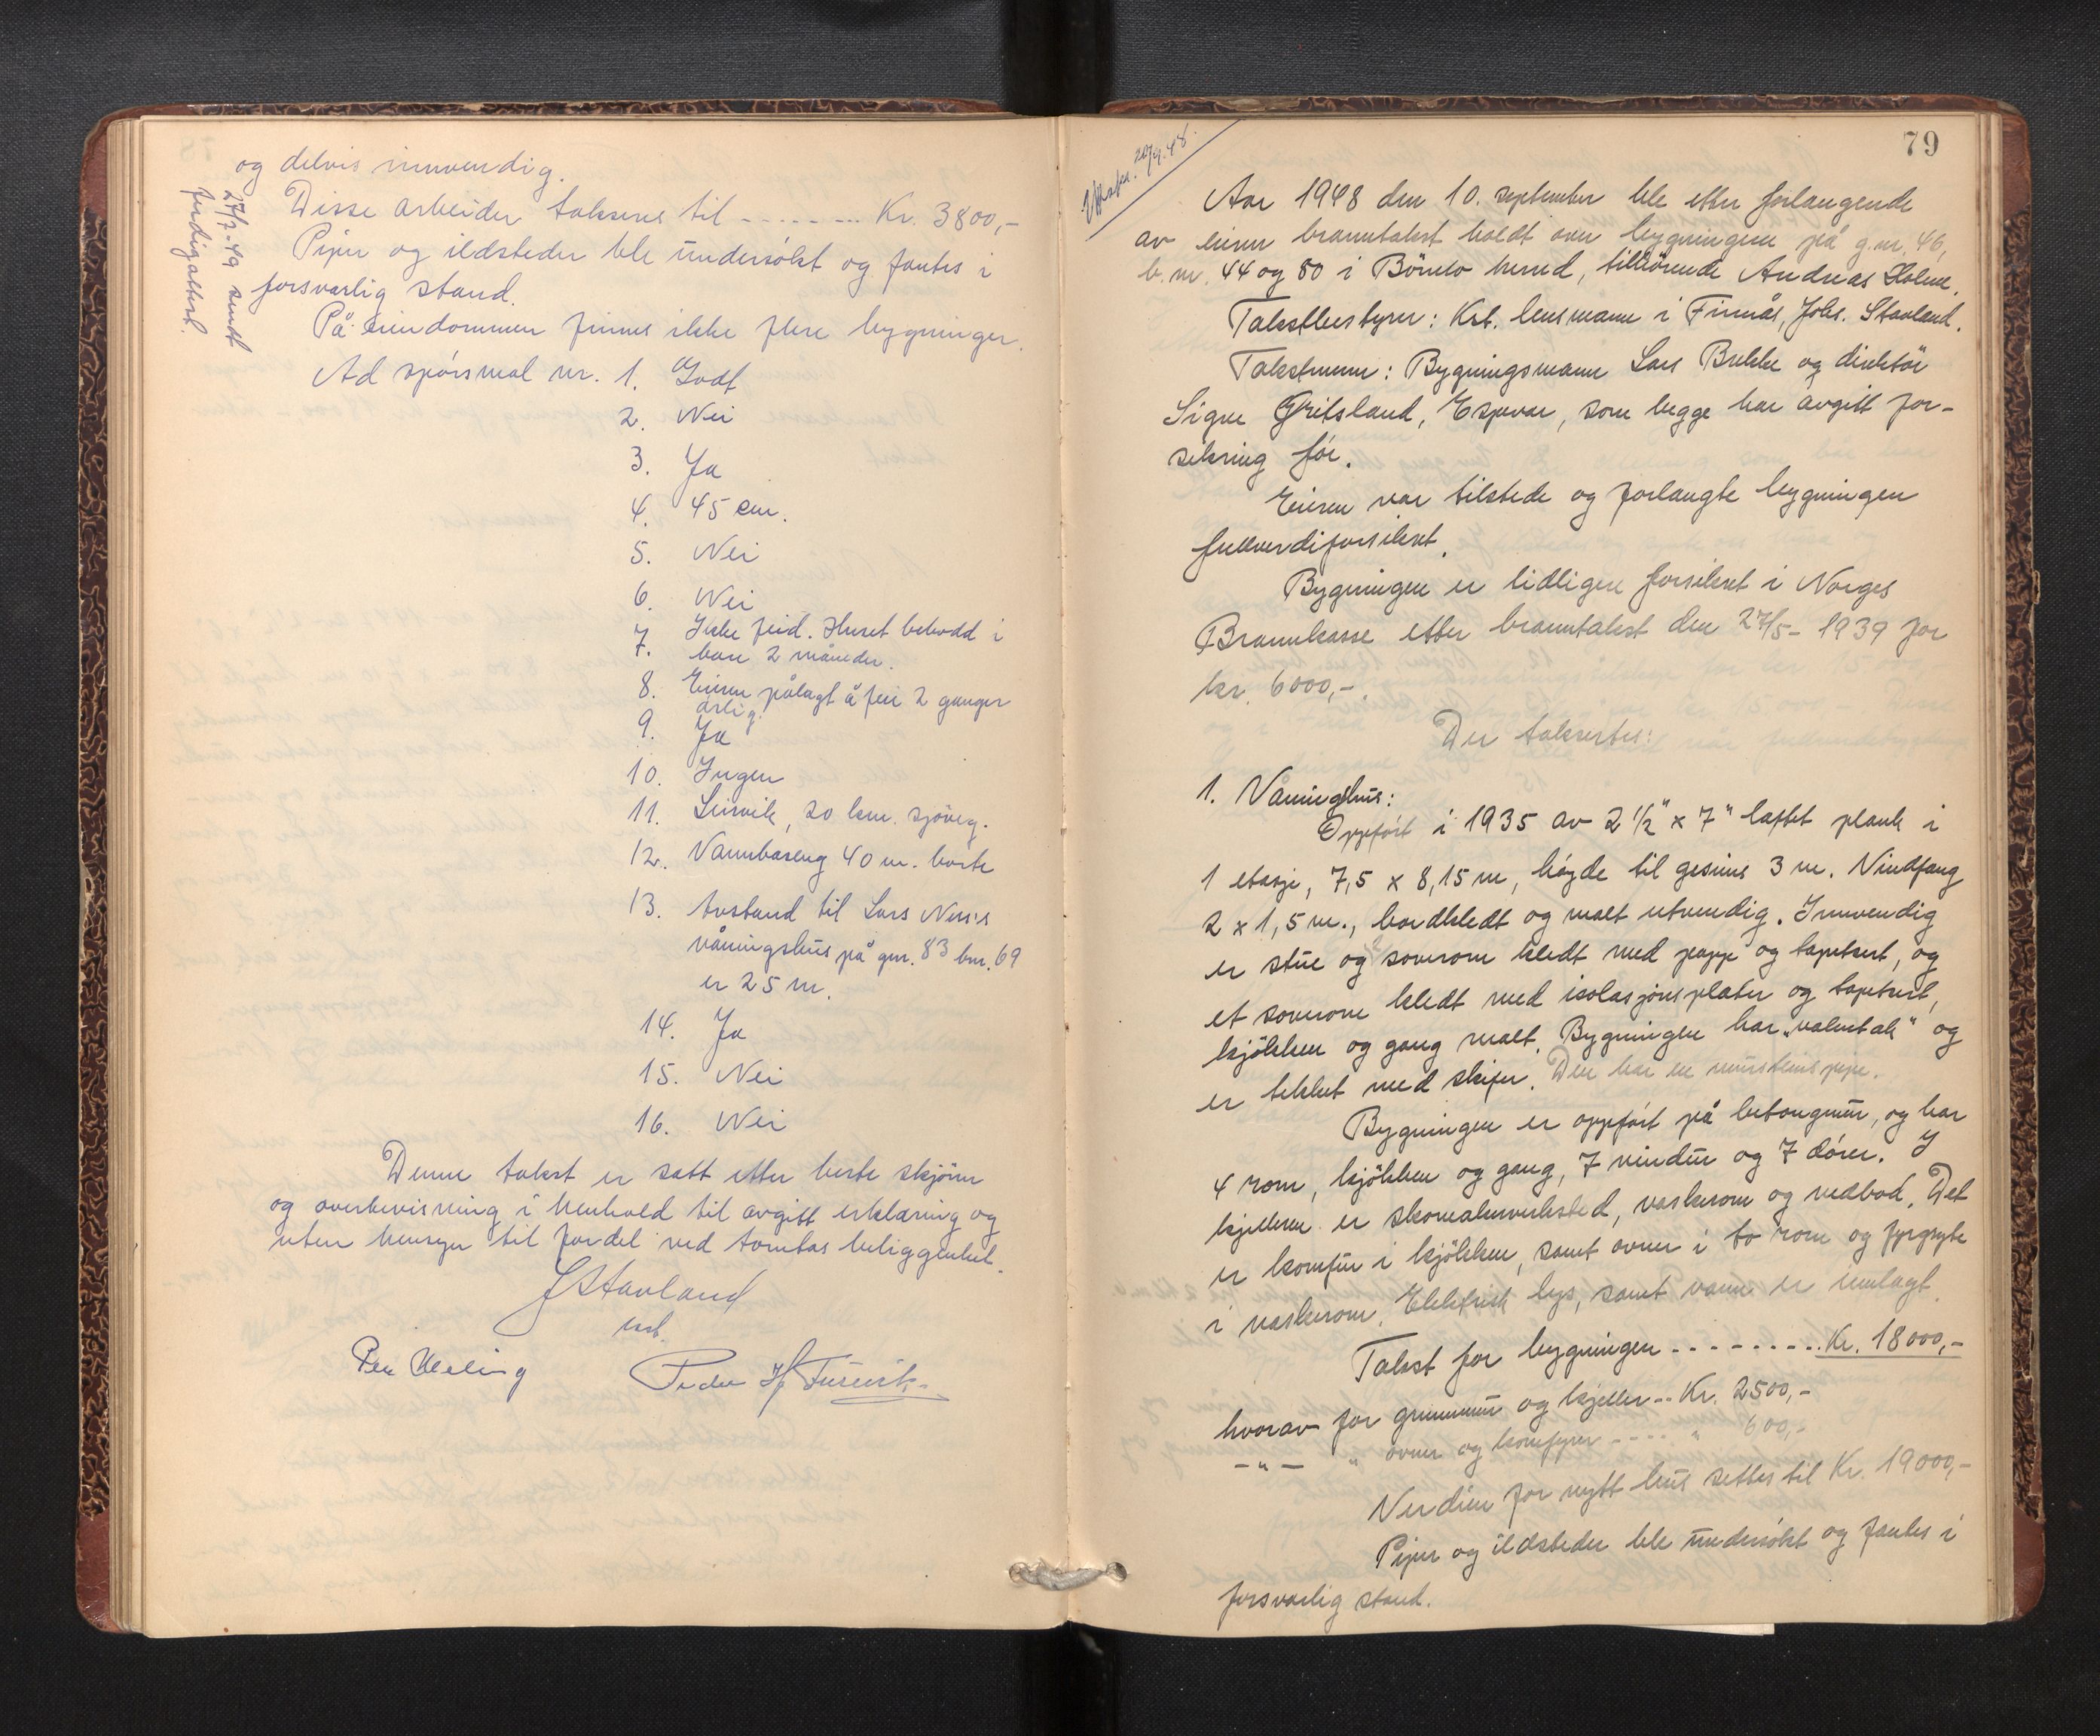 og delvis innvendig.
Disse arbeider takseres til ........ Kr. 3800,-
Piper og ildsteder ble undersökt og fantes i
forsvarlig stand.
På eiendommen finnes ikke flere bygninger.
27/7-49 sendt
ferdigattest.
Ad spörsmal nr. 1. Godt
2. Nei
3. Ja
4. 45 cm.
5. Nei
6. Nei
7. Ikke feid. Huset bebodd i
bare 2 måneder.
8. Eieren pålagt å feie 2 ganger
årlig.
9. Ja
10. Ingen
11. Leirvik, 20 km. sjöveg.
12. Vannbaseng 40 m. borte
13. Avstand til Lars Ness's
våningshus på gnr. 83 bnr. 69
er 25 m.
14. Ja
15. Nei
16. Nei
Denne takst er satt etter beste skjönn
og overbevisning i henhold til avgitt erklæring og
uten hensyn til fordel ved tomtas beliggenhet.
J Stavland
kst.
Peder H Turevik
79
20/9.48.
Aar 1948 den 10. september ble etter forlangende
av eieren branntakst holdt over bygningene på g.nr. 46,
b.nr. 44 og 80 i Bömlo herred, tilhörende Andreas Holme.
Takstbestyrer: Kst. lensmann i Finnås, Johs. Stavland.
Takstmenn: Bygningsmann Lars Bekke og direktör
Signe Gritsland, Espevær, som begge har avgitt for-
sikring för.
Eieren var tilstede og forlangte bygningen
fullverdiforsikret.
Bygningen er tidligere forsikret i Norges
Brannkasse etter branntakst den 27/5- 1939 for
kr. 6000,-.
Der taksertes:
1. Våningshus:
Oppfört i 1935 av 2 1/2" x 7" laftet plank i
1 etasje, 7,5 x 8,15 m, höyde til gesims 3 m. Vindfang
2 x 1,5 m., bordkledt og malt utvendig. Innvendig
er stue og 2 soverom kledt med papp og tapetsert, og
et soverom kledt med isolasjonsplater og tapetsert,
kjökken og gang malt. Bygningen har „valmtak" og
er tekket med skifer. Den har en mursteinspipe.
Bygningen er oppfört på betongmur, og har
4 rom, kjökken og gang, 7 vindu og 7 dörer. I
kjelleren er skomakerverksted, vaskerom og vedbod. Det
er komfur i kjökken, samt ovner i to rom og fyrgryte
i vaskerom. Elektrisk lys, samt vann er innlagt.
Takst for bygningen ......... Kr. 18000,-
hvorav for grunnmur og kjeller .. Kr. 2500,-
-"- " ovner og komfyrer .... " 600,-
Verdien for nytt hus settes til Kr. 19000,-
Piper og ildsteder ble undersökt og fantes i
forsvarlig stand.